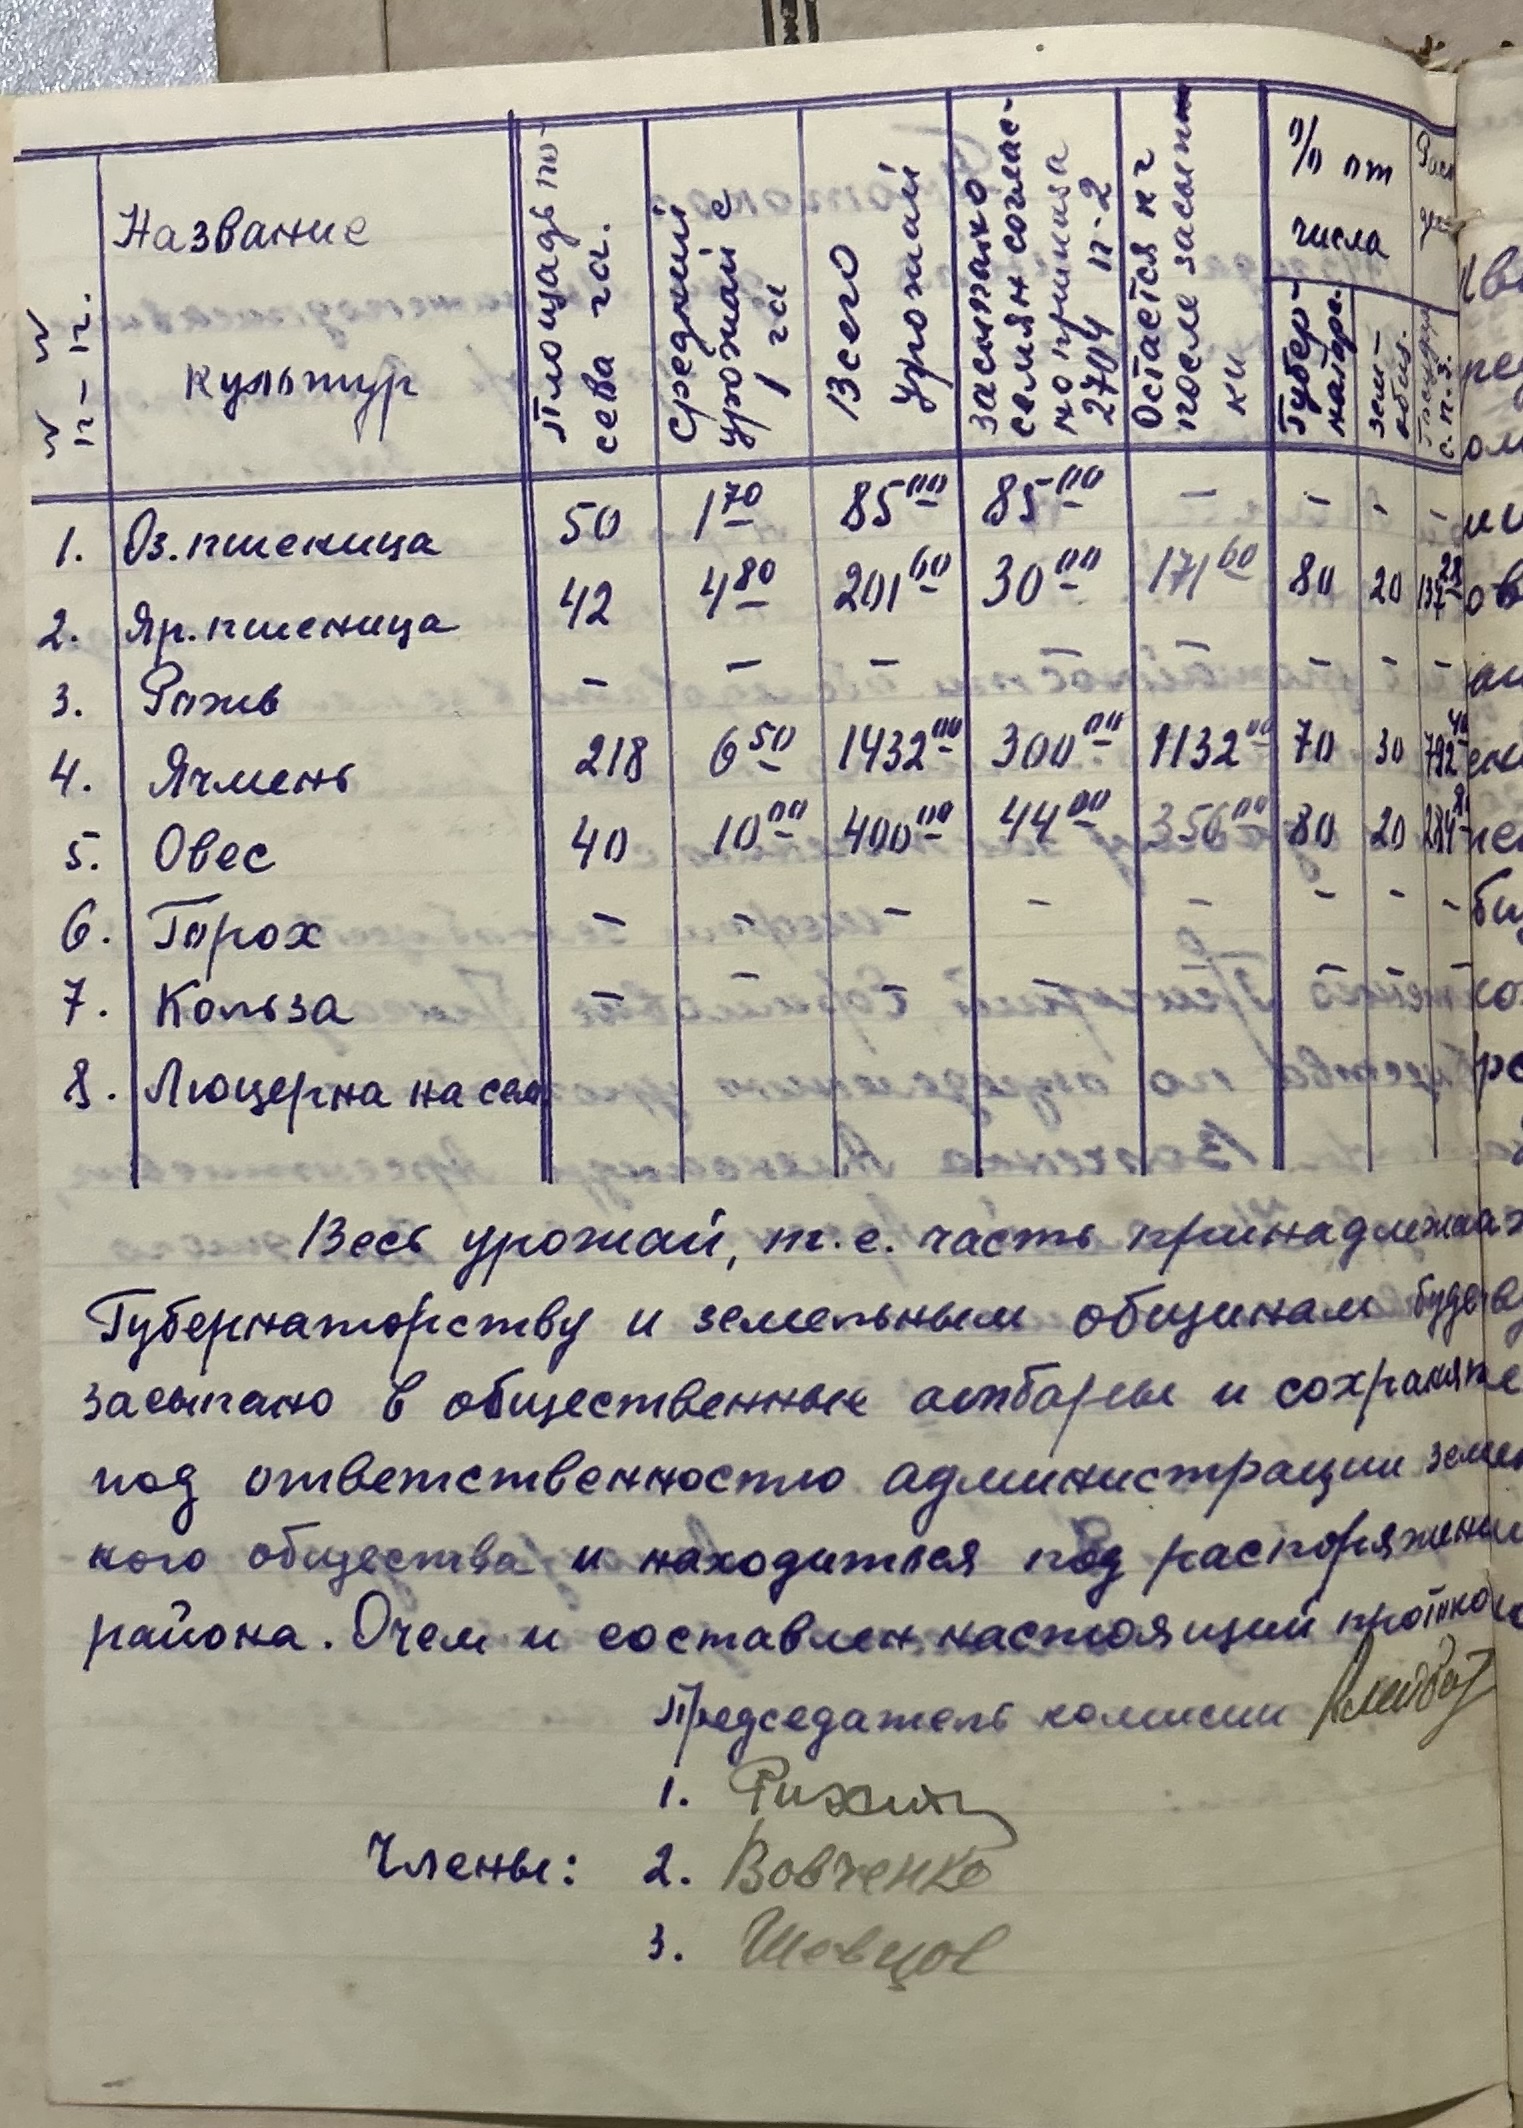 №№ п-п. Название культур Площадь посева га. Средний урожай с 1 га Всего урожай засыпано семян согласно приказа 2704 п-2 Остаётся кг после засыпки % от числа
Губернатор. зем-общ.
1. Оз. пшеница 50 1 70 85 00 85 00 – – – –
2. Яр. пшеница 42 4 80 201 60 30 00 171 60 80 20 137 28
3. Рожь – – – – – – – –
4. Ячмень 218 6 50 1432 00 300 00 1132 00 70 30 792 40
5. Овес 40 10 00 400 00 44 00 356 00 80 20 284 8
6. Горох – – – – – – – –
7. Кользa – – – – – – – –
8. Люцерна на сем
Весь урожай, т.е. часть принадлежащ
Губернаторству и земельным общинам будет
засыпано в общественные амбары и сохранят
под ответственностю администрации земел
ного общества и находится под распоряжени
района. Очем и составлен настоящий протокол
Председатель комиссии
1. Рихит
Члены: 2. Вовченко
3. Шевцов